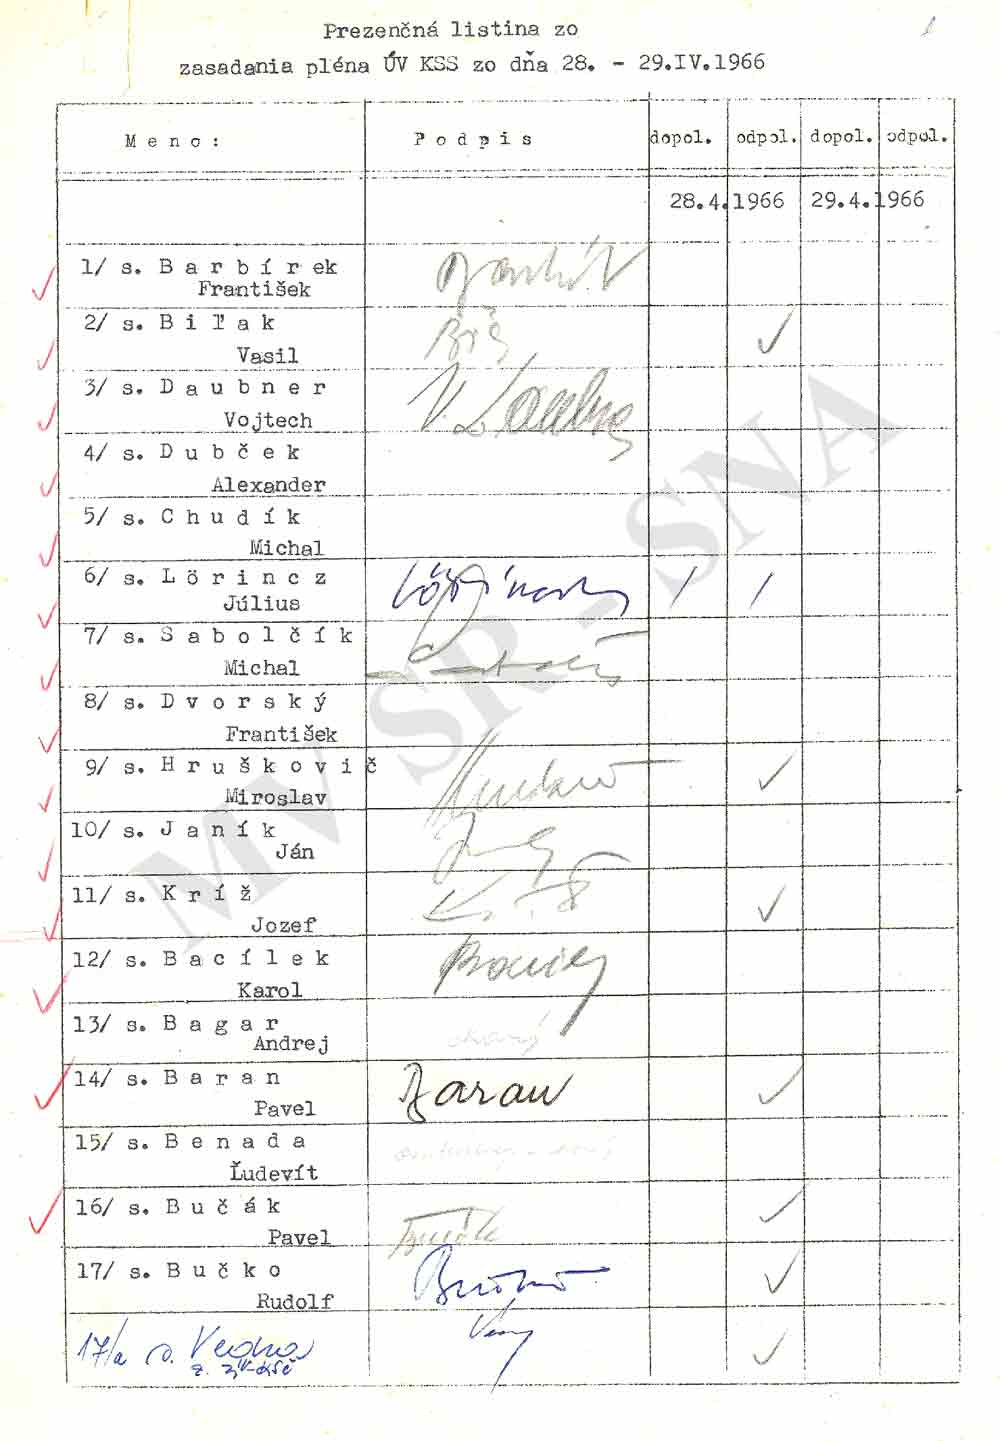 Prezenčná listina zo
zasadania pléna ÚV KSS zo dňa 28. - 29.IV.1966
Meno: Podpis dopol. odpol. dopol. odpol.
28.4.1966 29.4.1966
1/ s. Barbírek
František
2/ s. Biľak
Vasil
3/ s. Daubner
Vojtech
4/ s. Dubček
Alexander
5/ s. Chudík
Michal
6/ s. Lörincz
Július
7/ s. Sabolčík
Michal
8/ s. Dvorský
František
9/ s. Hruškovič
Miroslav
10/ s. Janík
Ján
11/ s. Kríž
Jozef
12/ s. Bacílek
Karol
13/ s. Bagar
Andrej
chorý
14/ s. Baran
Pavel
Baran
15/ s. Benada
Ľudevít
16/ s. Bučák
Pavel
Bučák
17/ s. Bučko
Rudolf
Bučko
17/a s.
MV SR - SNA